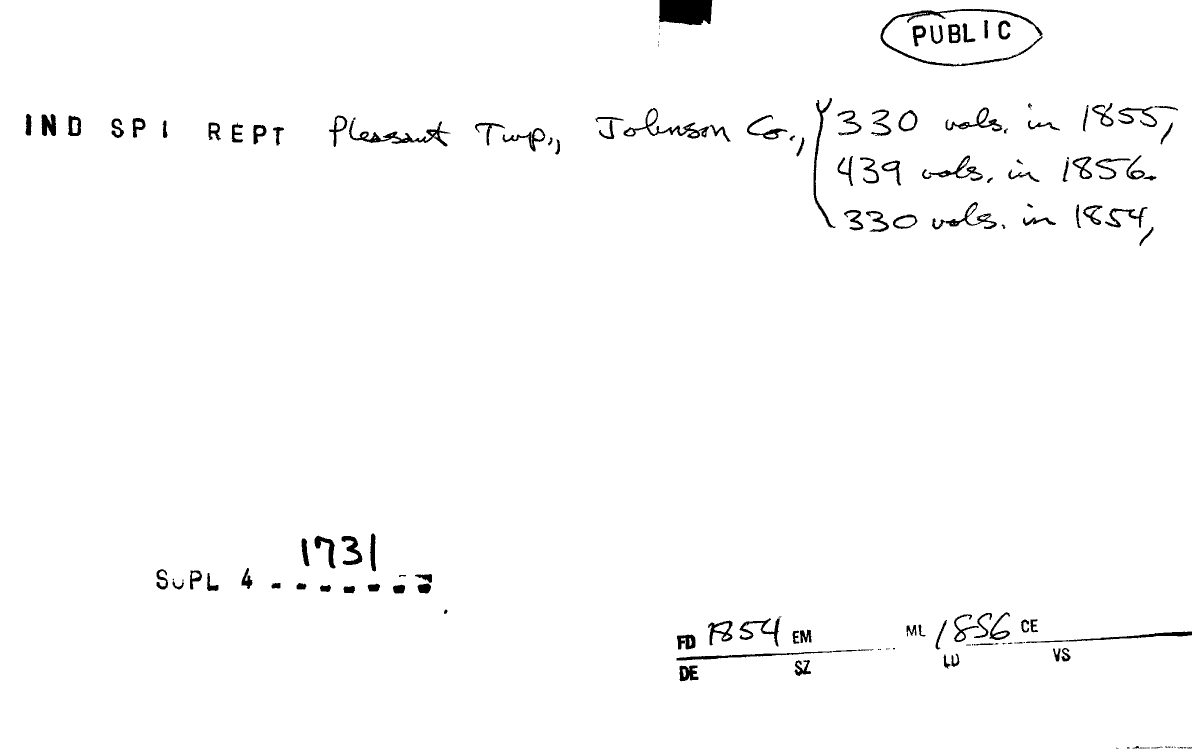 PUBLIC
IND SPI REPT Pleasant Twp., Johnson Co., 330 vols. in 1855,
439 vols. in 1856.
330 vols. in 1854,
1731
SUPL 4
FD 1854 EM ML 1856 CE
DE SZ LD VS